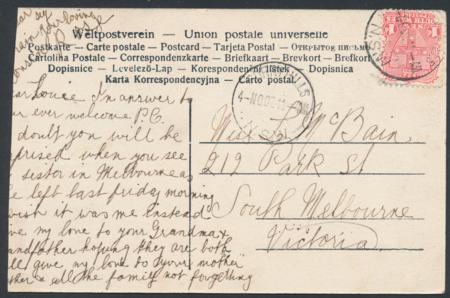 Weltpostverein — Union postale universelle
Postkarte — Carte postale — Postcard — Tarjeta Postal — Открытое письмо
Cartolina Postale — Correspondenzkarte — Briefkaart — Brevkort — Brefkort
Dopisnice — Levelező-Lap — Korespondenční lístek — Dopisnica
Karta Korrespondencyjna — Carto postal
In answer to
ever welcome P.C.
doubt you will be
prised when you see
sister in Melbourne as
left last friday morning
wish it was me instead
ve my love to your Grandma &
andfather hoping they are both
ll give my love to your mother
ther & all the family not forgetting
your loving
4-NO 02
1
1
Mc Bain
212 Park St
South Melbourne
Victoria